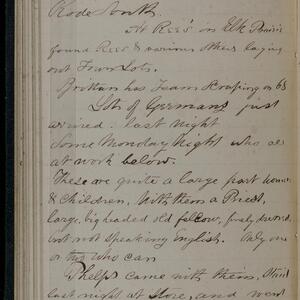 Rode South.
At Rees' in Elk Prairie
found Rees & various others laying
out Town Lots.
Brittan has Team Scraping on 65
Lots of Germans just
arrived: last night
Some Monday Night who are
at work below.
These are quite a large part women
& Children, With them a Priest,
large, big headed old fellow, finely dressed,
but not speaking English. Only one
or two who can
Phelps came with them, Staid
last night at Store, and went